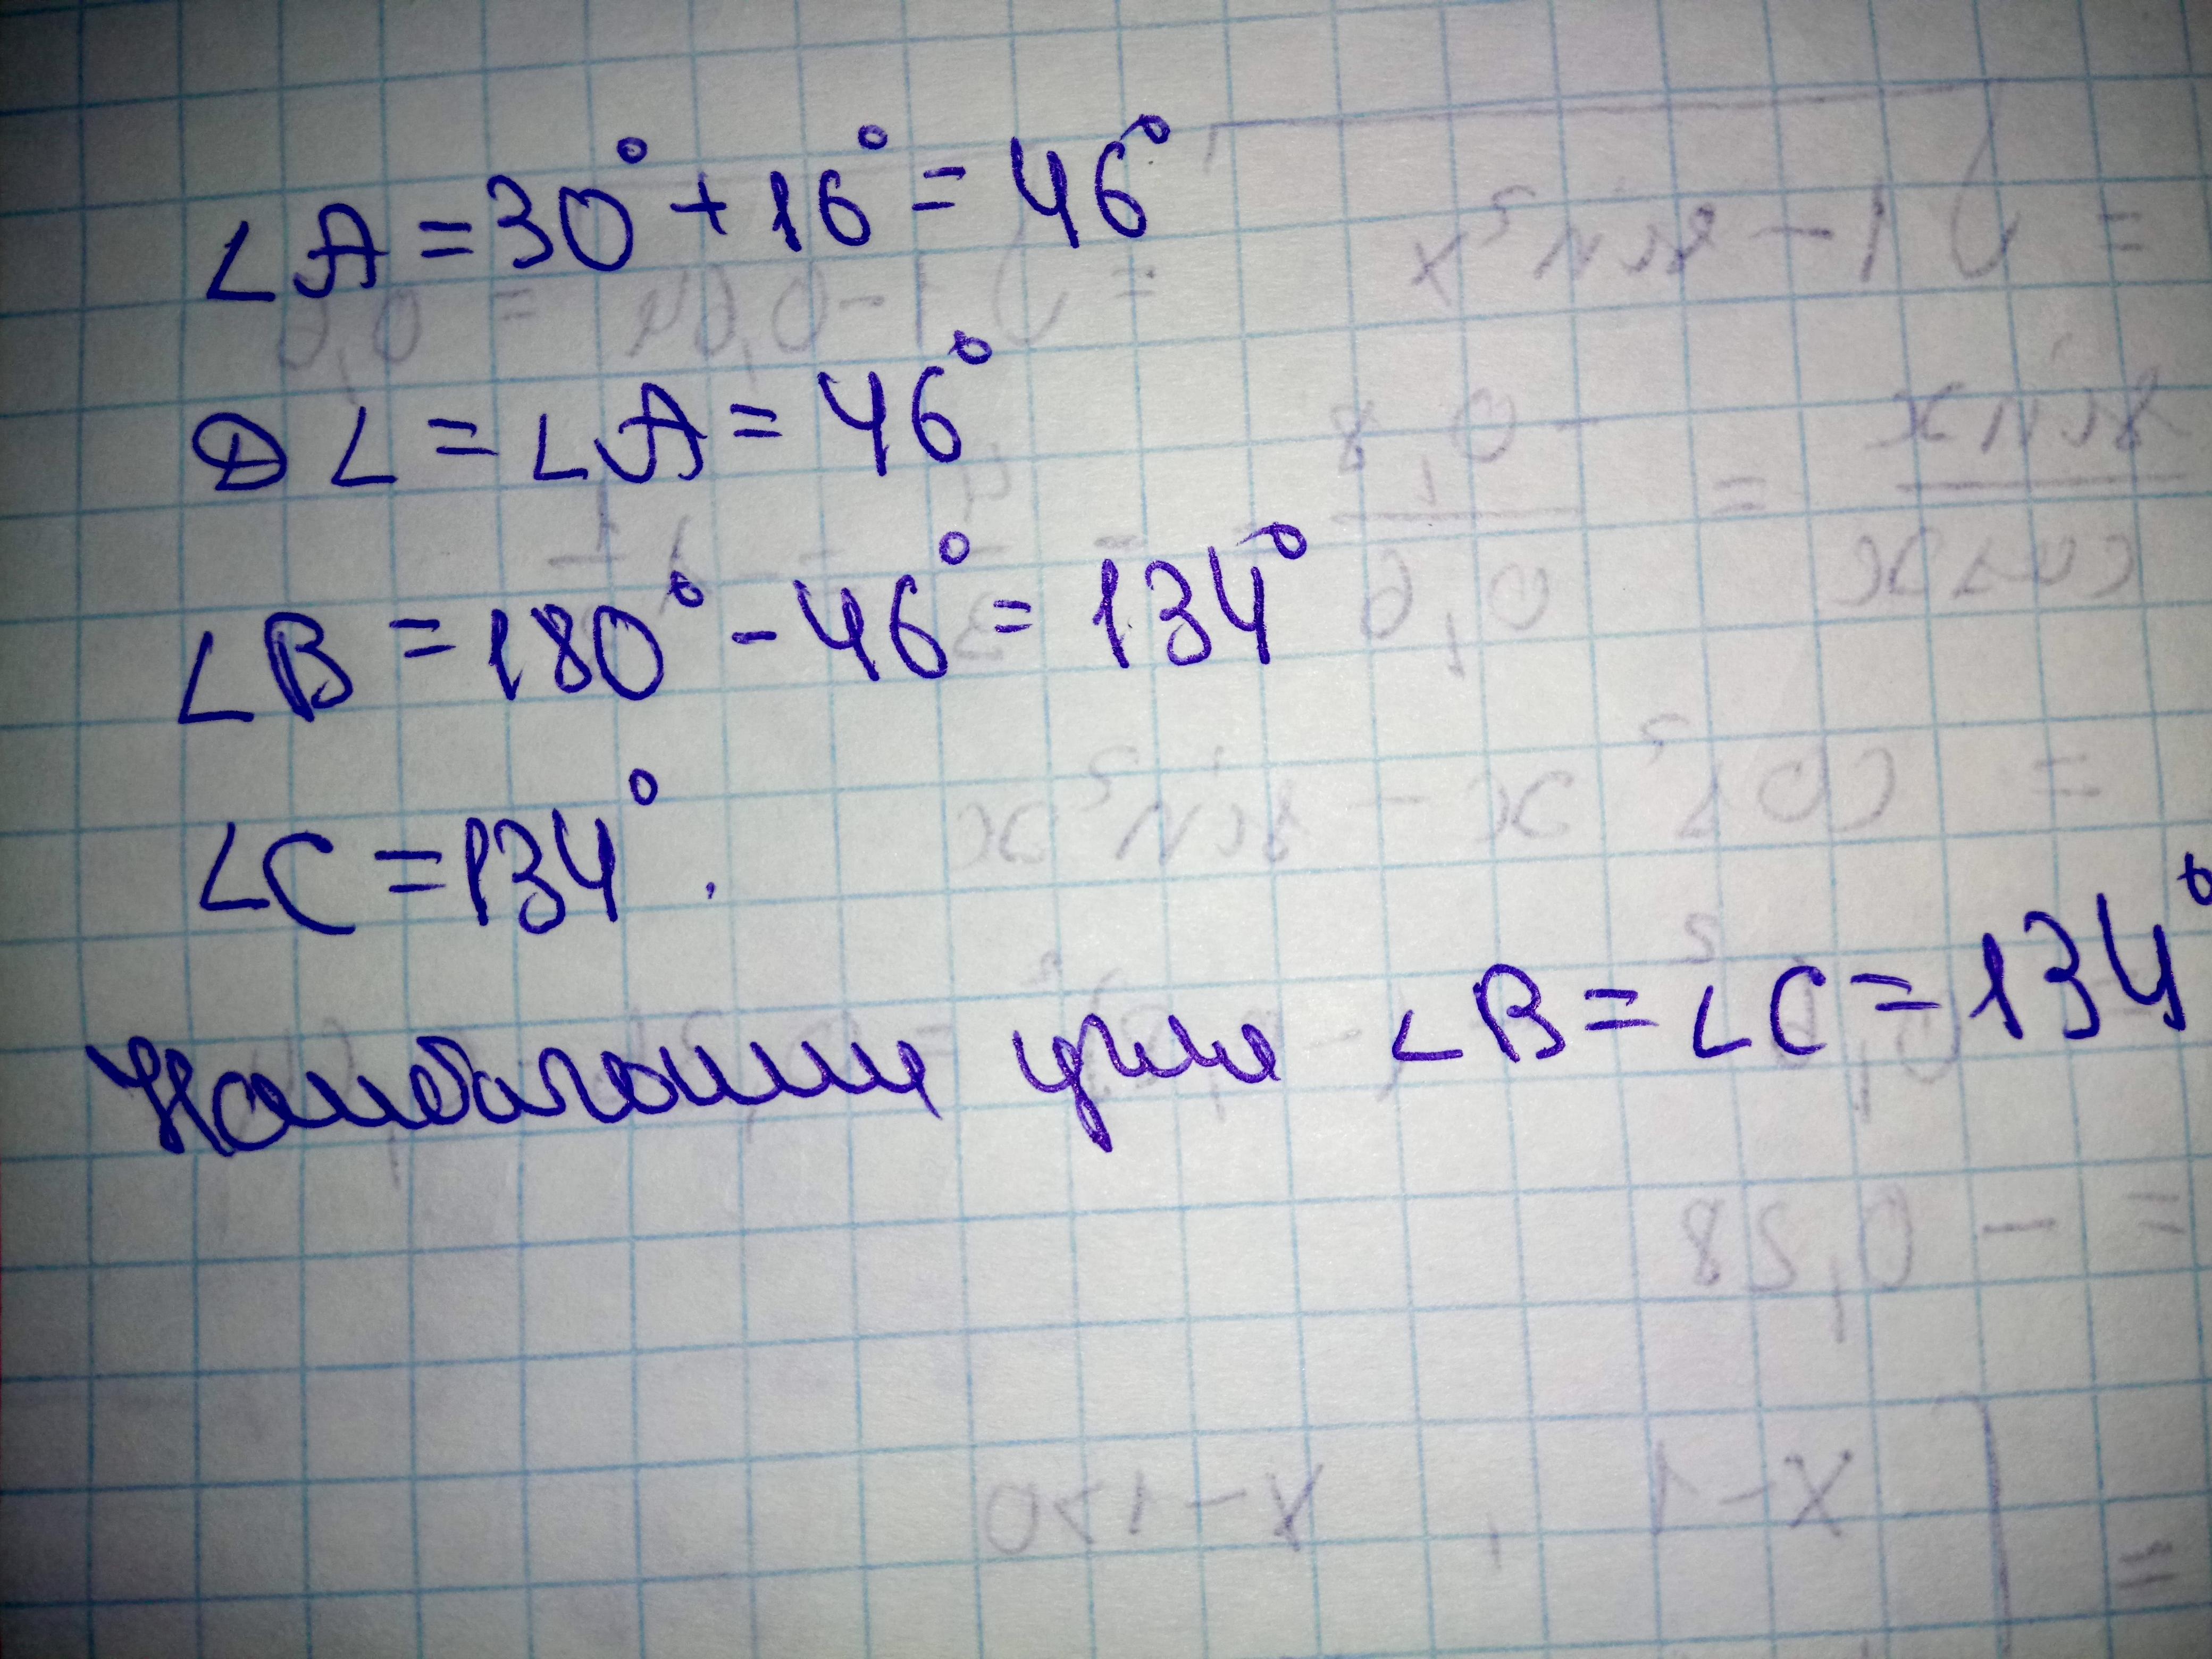 ∠A = 30° + 16° = 46°
D∠ = ∠A = 46°
∠B = 180° - 46° = 134°
∠C = 134°.
Наибольшие углы ∠B = ∠C = 134°